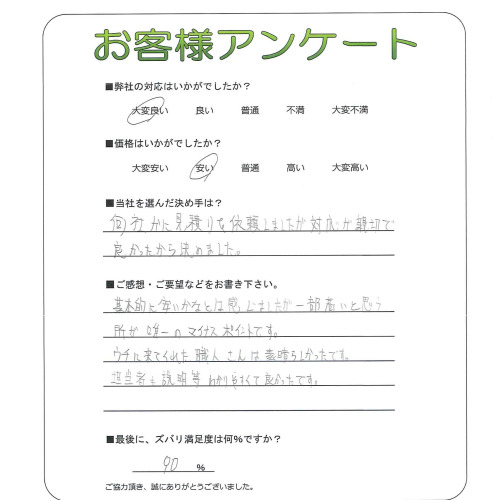 お客様アンケート
■弊社の対応はいかがでしたか?
大変良い 良い 普通 不満 大変不満
■価格はいかがでしたか?
大変安い 安い 普通 高い 大変高い
■当社を選んだ決め手は?
何社かに見積りを依頼しましたが対応が親切で
良かったから決めました。
■ご感想・ご要望などをお書き下さい。
基本的に安いかなとは感じましたが一部高いと思う
所が唯一のマイナスポイントです。
ウチに来てくれた職人さんは素晴らしかったです。
担当者も説明等わかりやすくて良かったです。
■最後に、ズバリ満足度は何%ですか?
90 %
ご協力頂き、誠にありがとうございました。